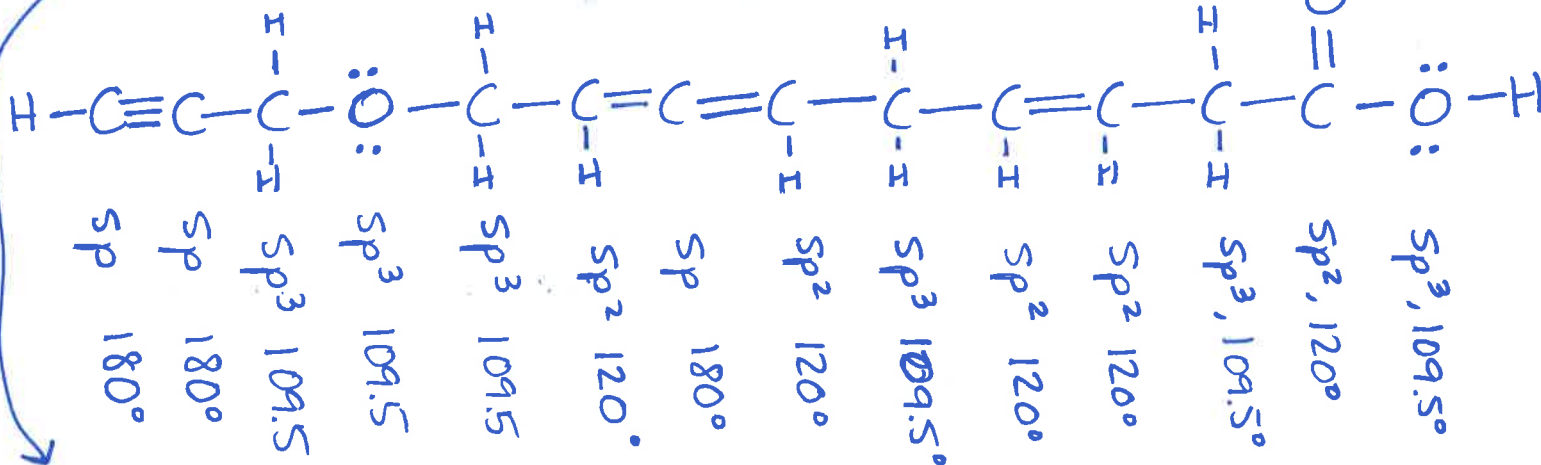 H H H H O
H-C≡C-C-O-C-C=C=C-C-C=C-C-C-O-H
H H H H H H H H
sp 180°
sp 180°
sp³ 109.5
sp³ 109.5
sp³ 109.5
sp² 120°
sp 180°
sp² 120°
sp³ 109.5°
sp² 120°
sp² 120°
sp³, 109.5°
sp², 120°
sp³, 109.5°